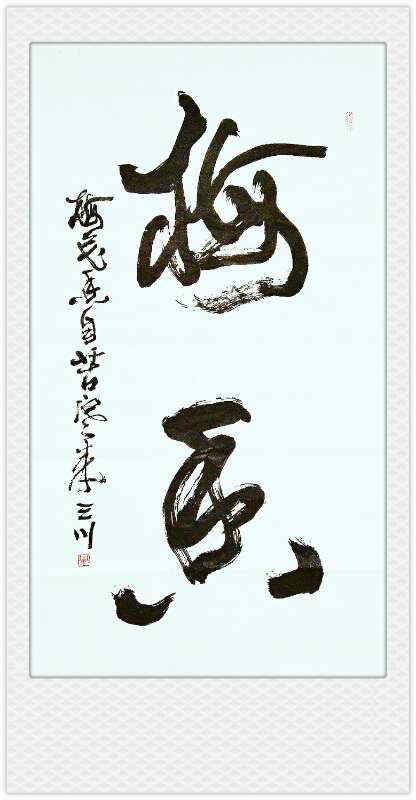 梅香
梅花香自苦寒来 三川